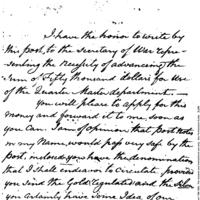 I have the honor to write by
this post, to the secretary of War repre-
senting the necessity of advancing the
Sum of Fifty thousand dollars for use
of the Quarter Master department. —
You will please to apply for this
money and forward it to me, soon as
you can. I am of opinion, that post notes
in my Name, would pass very safe by the
post, inclosed you have the denomination
that I shall endeavor to Circulate. provided
you send the Gold regulated and the
you certainly have some Idea of our